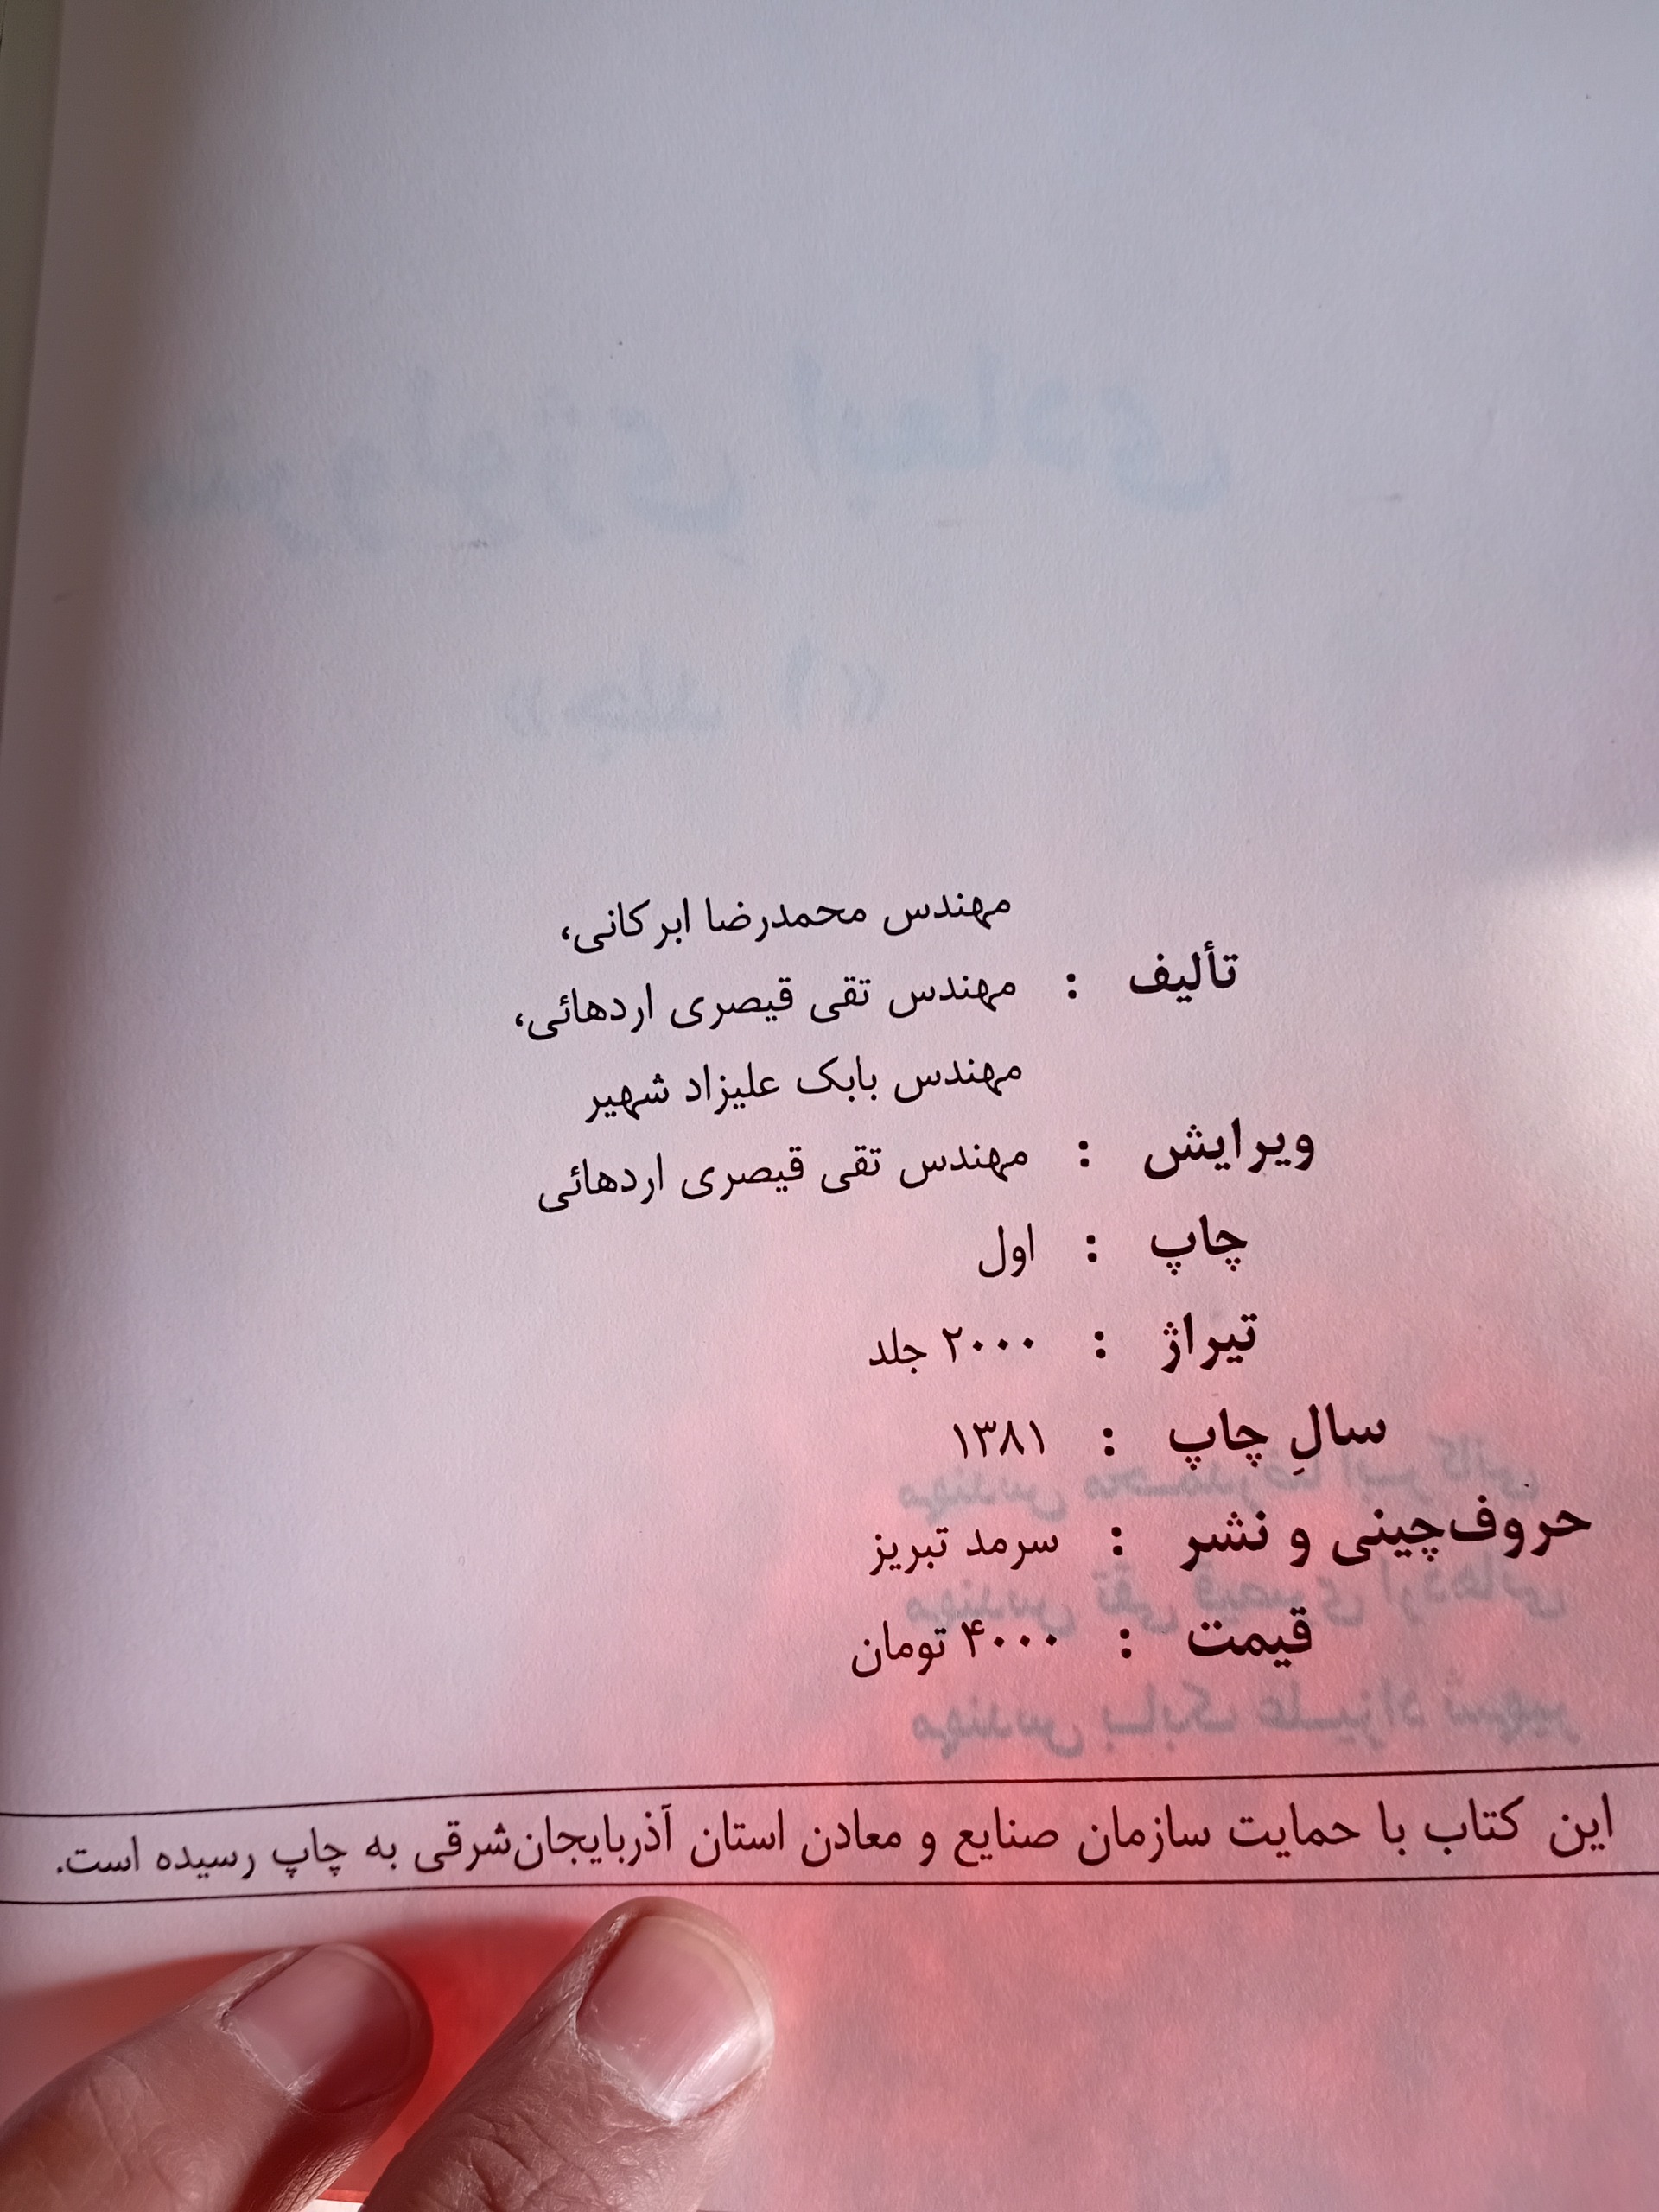 مهندس محمدرضا ابرکانی،
تألیف : مهندس تقی قیصری اردهائی،
مهندس بابک علیزاد شهیر
ویرایش : مهندس تقی قیصری اردهائی
چاپ : اول
تیراژ : ۲۰۰۰ جلد
سالِ چاپ : ۱۳۸۱
حروف‌چینی و نشر : سرمد تبریز
قیمت : ۴۰۰۰ تومان
این کتاب با حمایت سازمان صنایع و معادن استان آذربایجان‌شرقی به چاپ رسیده است.